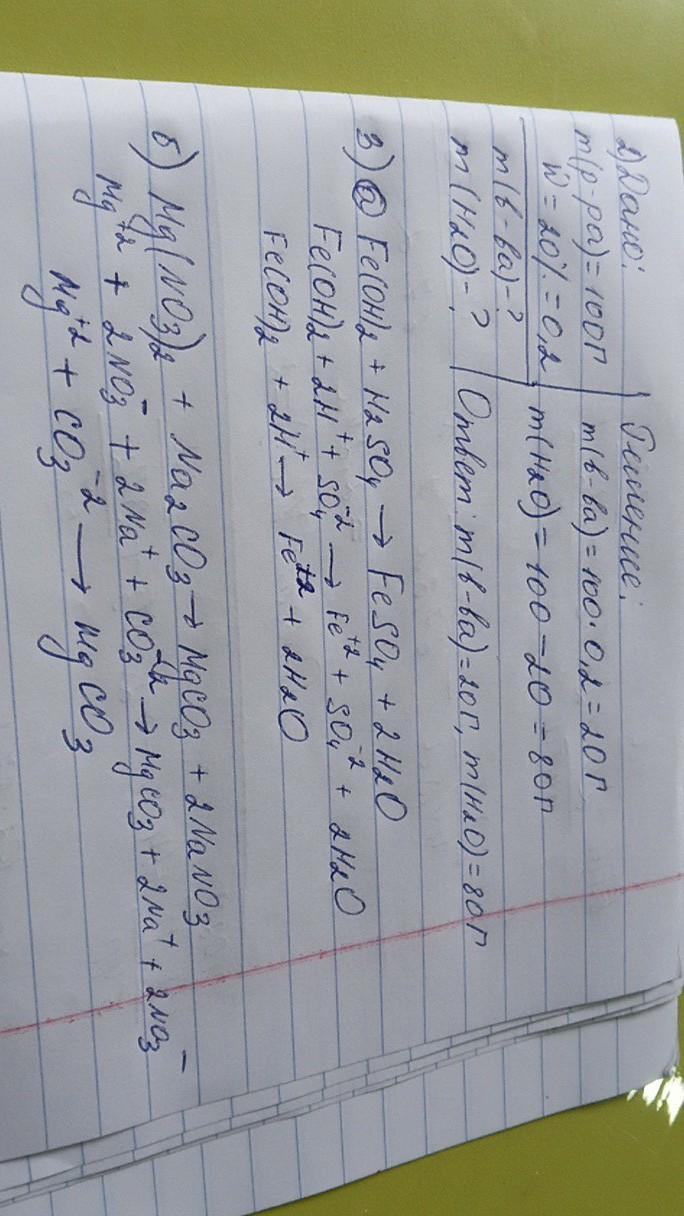 2) Дано: Решение:
m(р-ра) = 100г m(в-ва) = 100 · 0,2 = 20г
W = 20% = 0,2 m(H2O) = 100 - 20 = 80г
m(в-ва) - ?
m(H2O) - ? Ответ: m(в-ва) = 20г, m(H2O) = 80г
3) а) Fe(OH)2 + H2SO4 → FeSO4 + 2H2O
Fe(OH)2 + 2H+ + SO4-2 → Fe+2 + SO4-2 + 2H2O
Fe(OH)2 + 2H+ → Fe+2 + 2H2O
б) Mg(NO3)2 + Na2CO3 → MgCO3 + 2NaNO3
Mg+2 + 2NO3- + 2Na+ + CO3-2 → MgCO3 + 2Na+ + 2NO3-
Mg+2 + CO3-2 → MgCO3